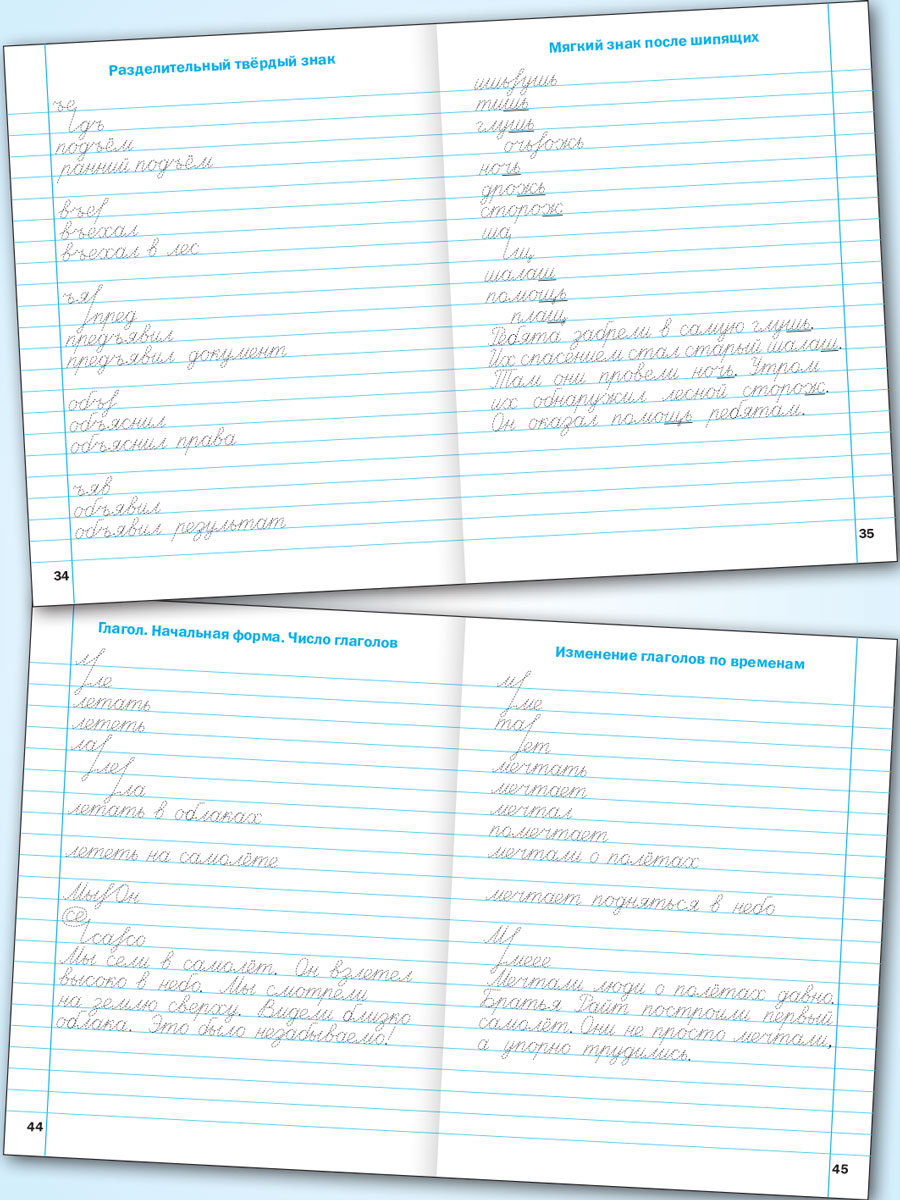 Разделительный твёрдый знак
ъе
дъ
подъём
ранний подъём
въе
въехал
въехал в лес
ъя
пред
предъявил
предъявил документ
объ
объяснил
объяснил права
ъяв
объявил
объявил результат
34
Мягкий знак после шипящих
шиь ушь
тишь
глушь
очь ожь
ночь
дрожь
сторож
ша
щ
шалаш
помощь
плащ
Ребята забрели в самую глушь.
Их спасением стал старый шалаш.
Там они провели ночь. Утром
их обнаружил лесной сторож.
Он оказал помощь ребятам.
35
Глагол. Начальная форма. Число глаголов
л
ле
летать
лететь
ла
ле
ла
летать в облаках
лететь на самолёте
Мы Он
се
са со
Мы сели в самолёт. Он взлетел
высоко в небо. Мы смотрели
на землю сверху. Видели близко
облака. Это было незабываемо!
44
Изменение глаголов по временам
м
ме
та
ет
мечтать
мечтает
мечтал
помечтает
мечтали о полётах
мечтает подняться в небо
М
меее
Мечтали люди о полётах давно.
Братья Райт построили первый
самолёт. Они не просто мечтали,
а упорно трудились.
45